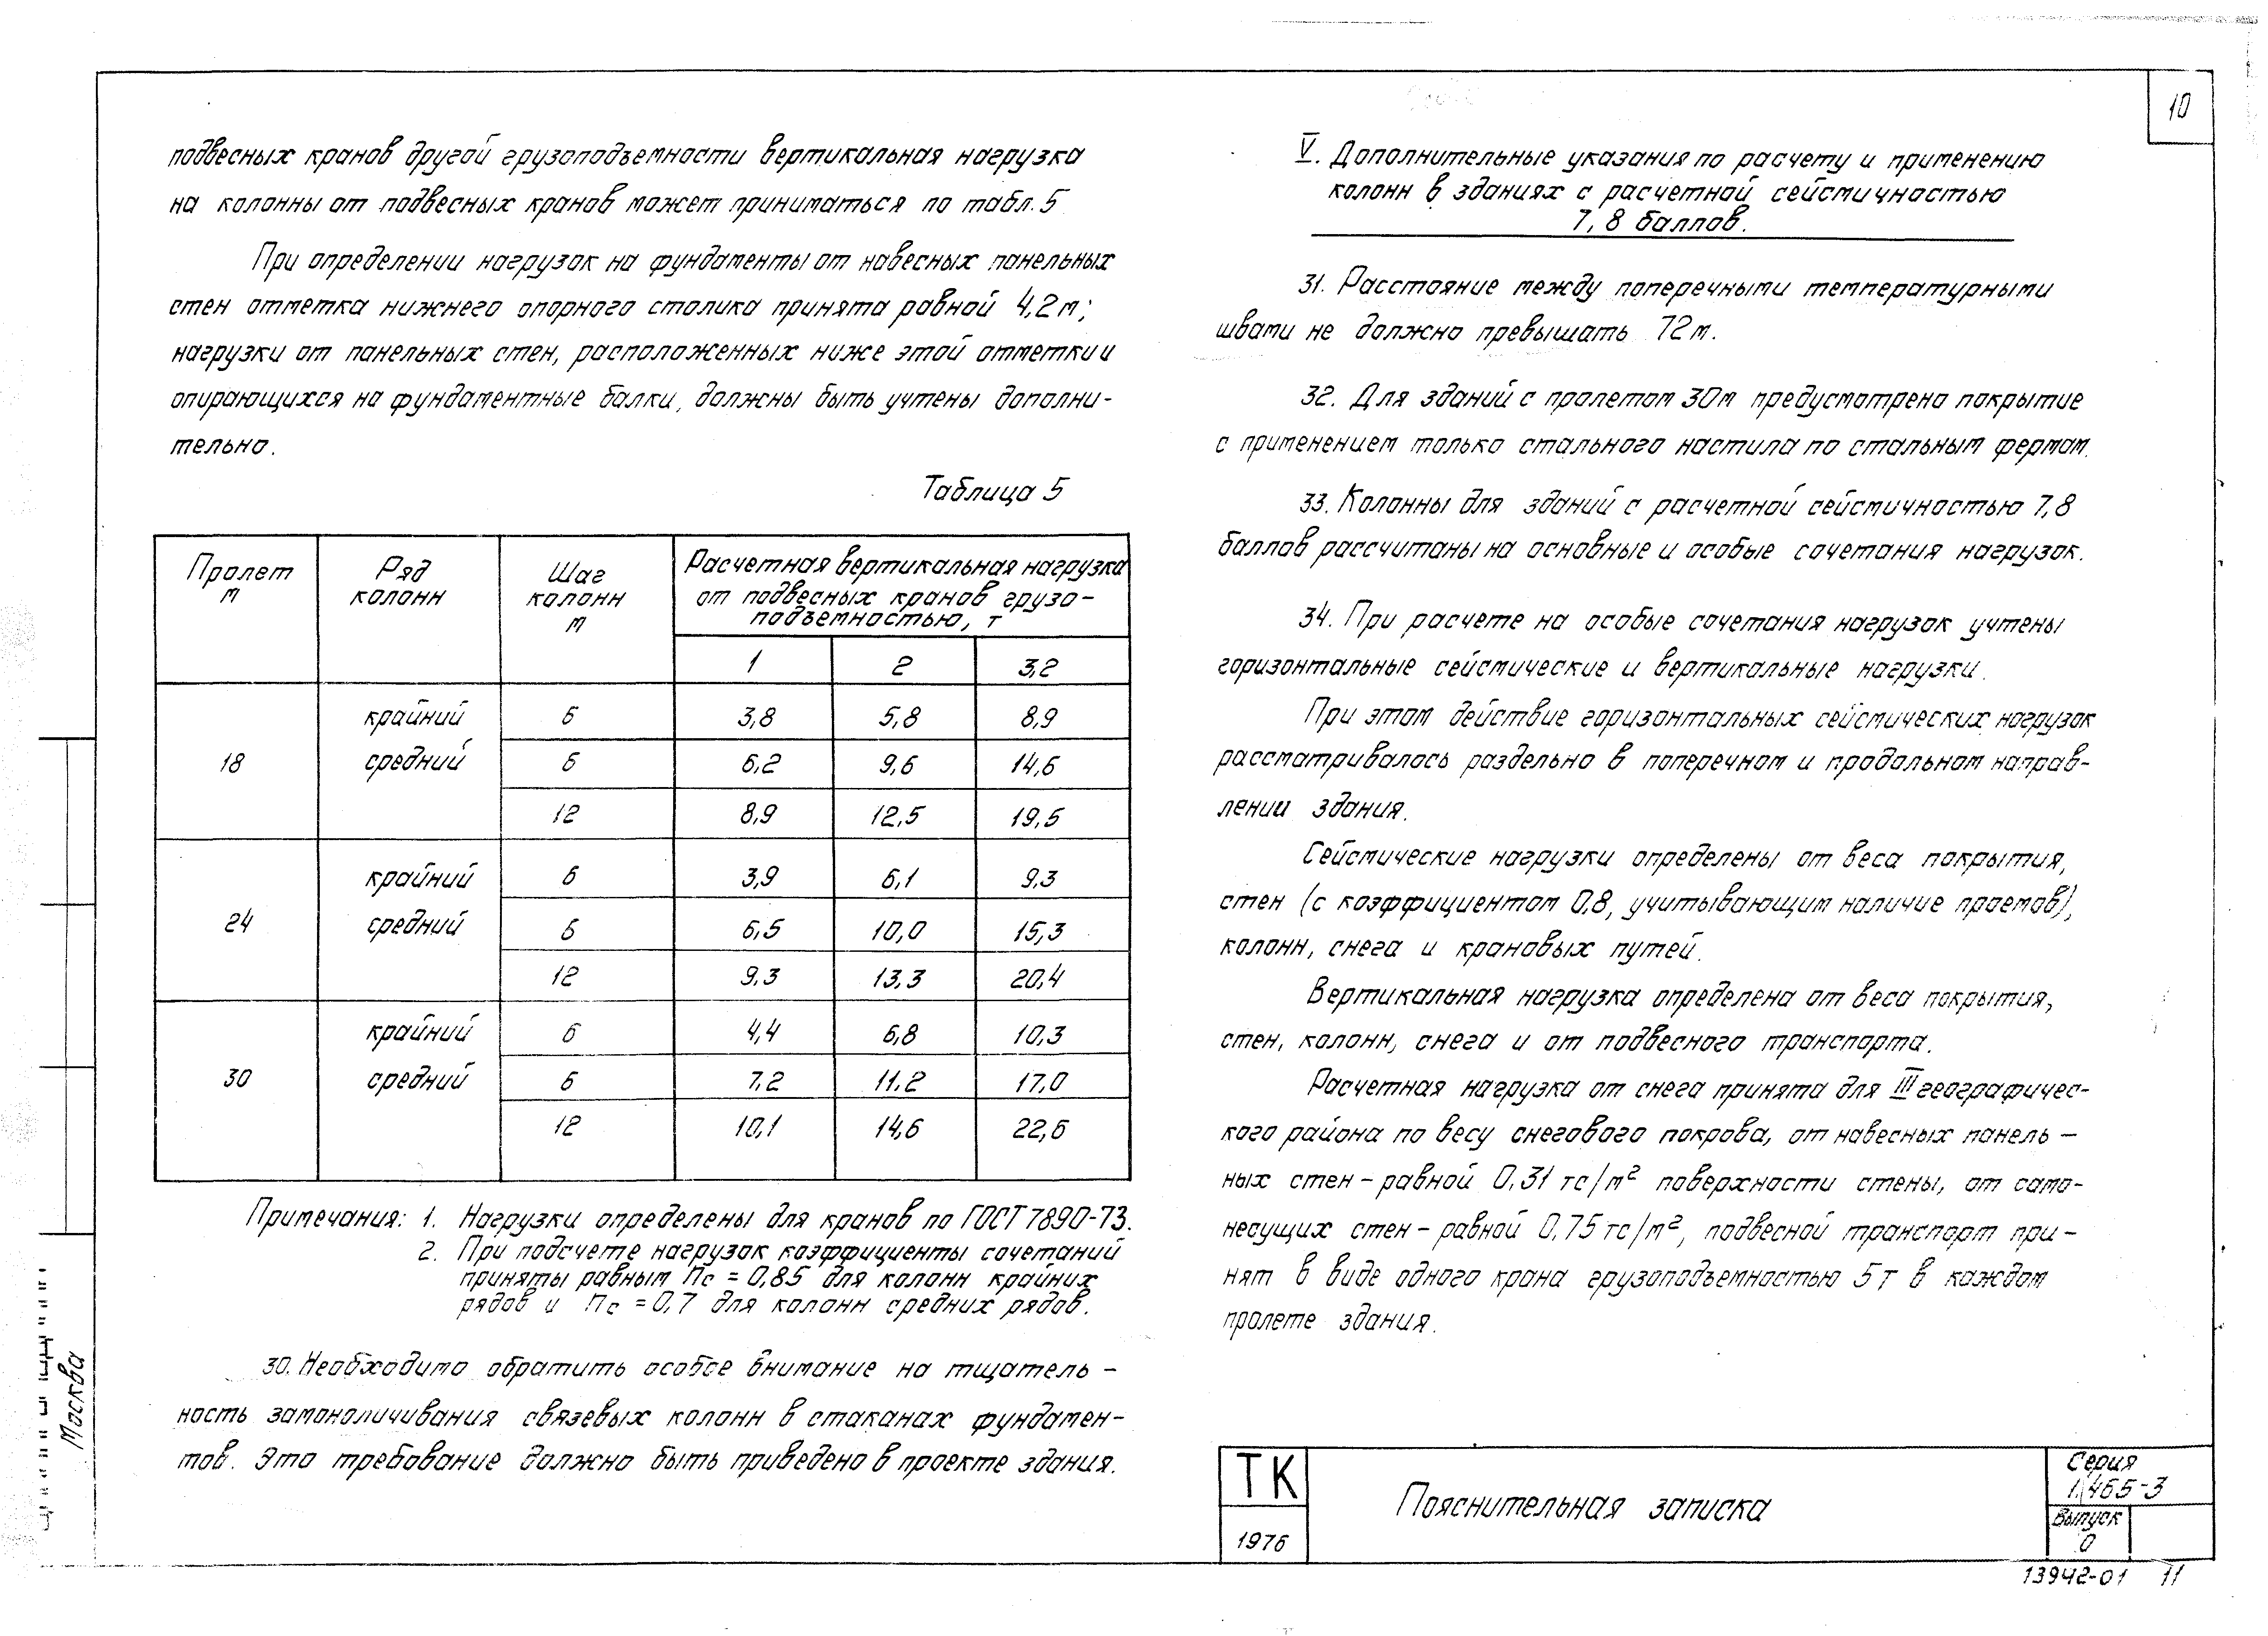 10
подвесных кранов другой грузоподъемности вертикальная нагрузка
на колонны от подвесных кранов может приниматься по табл. 5
При определении нагрузок на фундаменты от навесных панельных
стен отметка нижнего опорного столика принята равной 4,2 м;
нагрузки от панельных стен, расположенных ниже этой отметки и
опирающихся на фундаментные балки, должны быть учтены дополни-
тельно.
Таблица 5
Пролет м | Ряд колонн | Шаг колонн м | Расчетная вертикальная нагрузка
от подвесных кранов грузо-
подъемностью, т
1 2 3,2
18 крайний 6 3,8 5,8 8,9
средний 6 6,2 9,6 14,6
12 8,9 12,5 19,5
24 крайний 6 3,9 6,1 9,3
средний 6 6,5 10,0 15,3
12 9,3 13,3 20,4
30 крайний 6 4,4 6,8 10,3
средний 6 7,2 11,2 17,0
12 10,1 14,6 22,6
Примечания: 1. Нагрузки определены для кранов по ГОСТ 7890-73.
2. При подсчете нагрузок коэффициенты сочетаний
приняты равным nc = 0,85 для колонн крайних
рядов и nc = 0,7 для колонн средних рядов.
30. Необходимо обратить особое внимание на тщатель-
ность замоноличивания связевых колонн в стаканах фундамен-
тов. Это требование должно быть приведено в проекте здания.
V. Дополнительные указания по расчету и применению
колонн в зданиях с расчетной сейсмичностью
7, 8 баллов.
31. Расстояние между поперечными температурными
швами не должно превышать 72 м.
32. Для зданий с пролетом 30м предусмотрено покрытие
с применением только стального настила по стальным фермам.
33. Колонны для зданий с расчетной сейсмичностью 7, 8
баллов рассчитаны на основные и особые сочетания нагрузок.
34. При расчете на особые сочетания нагрузок учтены
горизонтальные сейсмические и вертикальные нагрузки.
При этом действие горизонтальных сейсмических нагрузок
рассматривалось раздельно в поперечном и продольном направ-
лении здания.
Сейсмические нагрузки определены от веса покрытия,
стен (с коэффициентом 0,8, учитывающим наличие проемов),
колонн, снега и крановых путей.
Вертикальная нагрузка определена от веса покрытия,
стен, колонн, снега и от подвесного транспорта.
Расчетная нагрузка от снега принята для III географичес-
кого района по весу снегового покрова, от навесных панель-
ных стен - равной 0,31 тс/м² поверхности стены, от само-
несущих стен - равной 0,75 тс/м², подвесной транспорт при-
нят в виде одного крана грузоподъемностью 5т в каждом
пролете здания.
ТК
1976
Пояснительная записка
Серия
1.465-3
Выпуск
0
13942-01 11
Москва